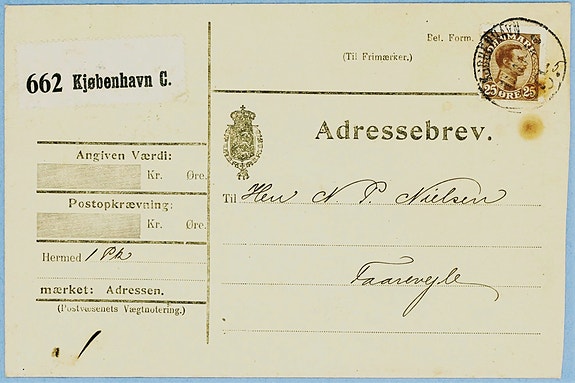 662 Kjøbenhavn C.
Bet. Form.
(Til Frimærker.)
KJØBENHAVN
DANMARK
25 ØRE 25
Adressebrev.
Angiven Værdi:
Kr. Øre.
Postopkrævning:
Kr. Øre.
Hermed 1 Pk
mærket: Adressen.
(Postvæsenets Vægtnotering.)
1
Til Herr N P. Nielsen
Faarevejle